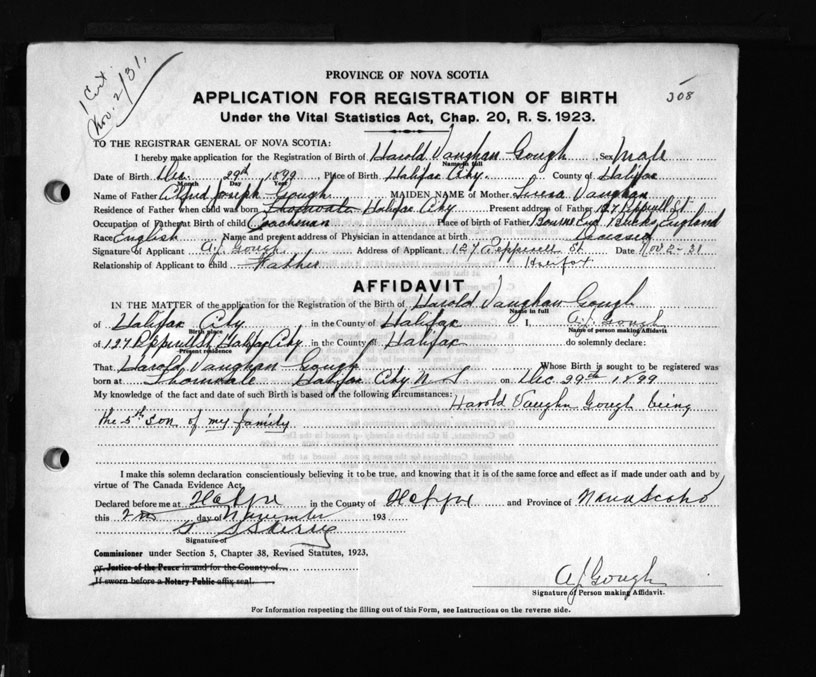 1 Cert.
Nov. 2/31.
308
PROVINCE OF NOVA SCOTIA
APPLICATION FOR REGISTRATION OF BIRTH
Under the Vital Statistics Act, Chap. 20, R. S. 1923.
TO THE REGISTRAR GENERAL OF NOVA SCOTIA:
I hereby make application for the Registration of Birth of Harold Vaughan Gough Sex Male
Name in full
Date of Birth Dec. 29th 1899 Place of Birth Halifax City. County of Halifax
Month Day Year
Name of Father Alfred Joseph Gough MAIDEN NAME of Mother Vaughan
Residence of Father when child was born Thornvale Halifax City Present address of Father 127 Pepperell St.
Occupation of Father at Birth of child Coachman Place of birth of Father Bourne End Bucks England
Race English Name and present address of Physician in attendance at birth
Signature of Applicant A.J. Gough Address of Applicant 127 Pepperell St Date Nov 2-31
Relationship of Applicant to child Father Halifax
AFFIDAVIT
IN THE MATTER of the application for the Registration of the Birth of Harold Vaughan Gough
Name in full
of Halifax City in the County of Halifax I, A.J. Gough
Birth place Name of person making Affidavit
of 127 Pepperell St. Halifax City in the County of Halifax do solemnly declare:
Present residence
That Harold Vaughan Gough Whose Birth is sought to be registered was
born at Thornvale Halifax City N. S on Dec 29th 1899
My knowledge of the fact and date of such Birth is based on the following circumstances: Harold Vaughn Gough being
the 5th son of my family
I make this solemn declaration conscientiously believing it to be true, and knowing that it is of the same force and effect as if made under oath and by
virtue of The Canada Evidence Act,
Declared before me at Halifax in the County of Halifax and Province of Nova Scotia
this 2nd day of November 193
Signature of
Commissioner under Section 5, Chapter 38, Revised Statutes, 1923,
or Justice of the Peace in and for the County of
If sworn before a Notary Public affix seal.
A.J. Gough
Signature of Person making Affidavit.
For Information respecting the filling out of this Form, see Instructions on the reverse side.